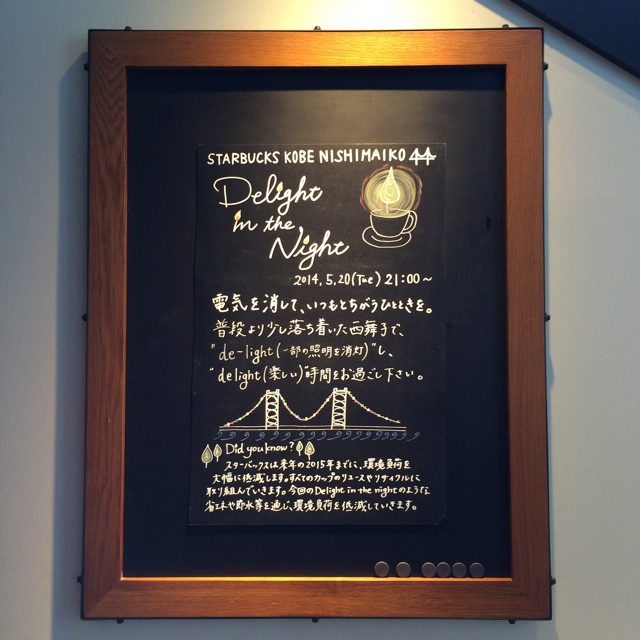 STARBUCKS KOBE NISHIMAIKO
Delight
in the
Night
2014.5.20(Tue) 21:00~
電気を消して、いつもとちがうひとときを。
普段より少し落ち着いた西舞子で、
"de-light(一部の照明を消灯)"し、
"delight(楽しい)"時間をお過ごし下さい。
Did you know?
スターバックスは来年の2015年までに、環境負荷を
大幅に低減します。すべてのカップのリユースやリサイクルに
取り組んでいきます。今回のDelight in the nightのような
省エネや節水等を通じ、環境負荷を低減していきます。